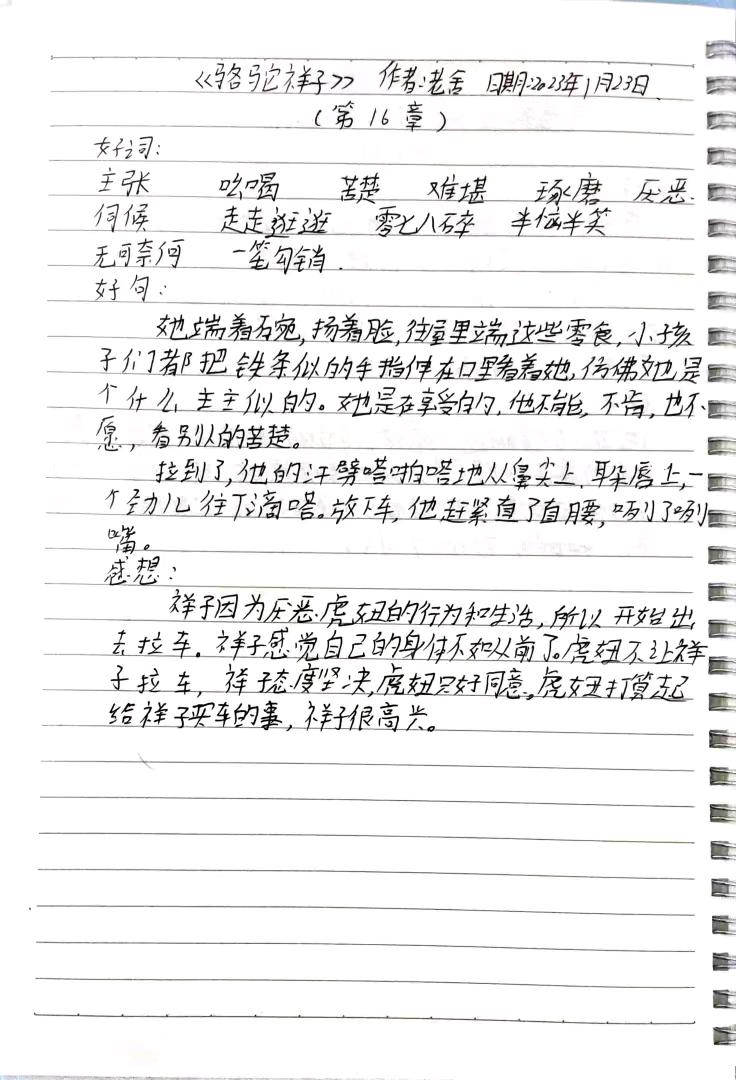 《骆驼祥子》 作者:老舍 日期:2023年1月23日
(第16章)
好词:
主张 吆喝 苦楚 难堪 琢磨 厌恶
伺候 走走逛逛 零七八碎 半恼半笑
无可奈何 一笔勾销.
好句:
她端着石宛,扬着脸,往屋里端这些零食,小孩
子们都把铁条似的手指伸在口里看着她,仿佛她是
个什么主主似的。她是在享受的,他不能,不肯,也不
愿,看别人的苦楚。
拉到了,他的汗劈嗒啪嗒地从鼻尖上.耳朵唇上,一
个劲儿往下滴嗒。放下车,他赶紧直了直腰,咧了咧
嘴。
感想:
祥子因为厌恶虎妞的行为和生活,所以开始出
去拉车。祥子感觉自己的身体不如从前了。虎妞不让祥
子拉车,祥子态度坚决,虎妞只好同意。虎妞打算起
给祥子买车的事,祥子很高兴。